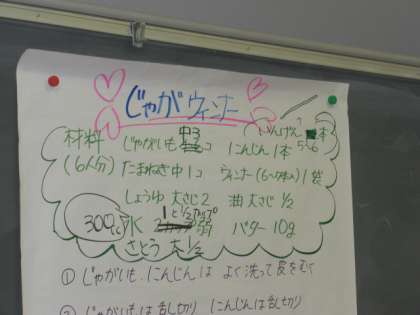 じゃがウィンナー
材料 じゃがいも 中3コ いんげん 5〜6本
(6人分) たまねぎ中1コ にんじん1本 ウィンナー(6〜7本入)1袋
しょうゆ 大さじ2 油 大さじ1/2
300cc 水 1と1/2カップ バター10g
さとう 大1/2
①じゃがいも、にんじんは よく洗って皮をむく
じゃがいもは乱切り にんじんは乱切り